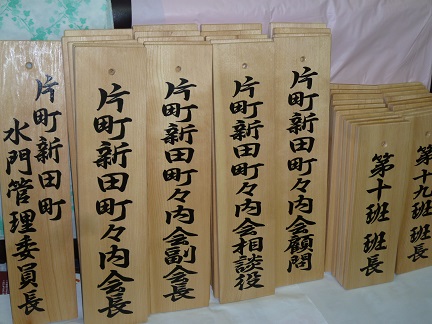 片町新田町
水門管理委員長
片町新田町々内会長
片町新田町々内会副会長
片町新田町々内会相談役
片町新田町々内会顧問
第十班班長
第十九班班長